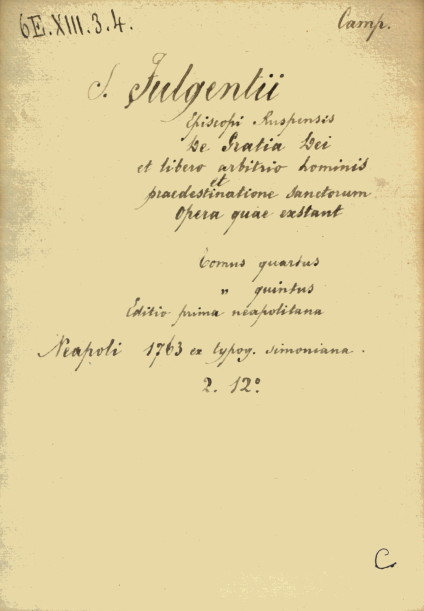 6E.XIII.3.4.
Camp.
S. Fulgentii
Episcopi Ruspensis
De Gratia Dei
et libero arbitrio hominis
et
praedestinatione sanctorum
Opera quae exstant
Tomus quartus
" quintus
Editio prima neapolitana
Neapoli 1763 ex typog. simoniana.
2. 12°.
C.